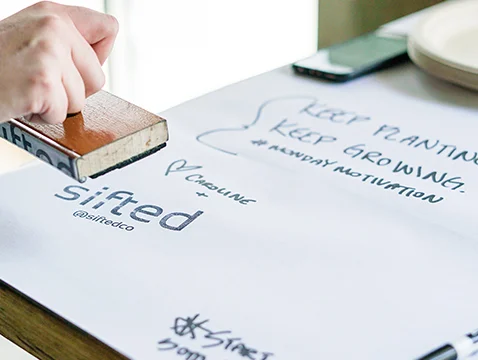 KEEP PLANTING
KEEP GROWING.
# MONDAY MOTIVATION
♡ CAROLINE
+
sifted
@siftedco
sifted
START